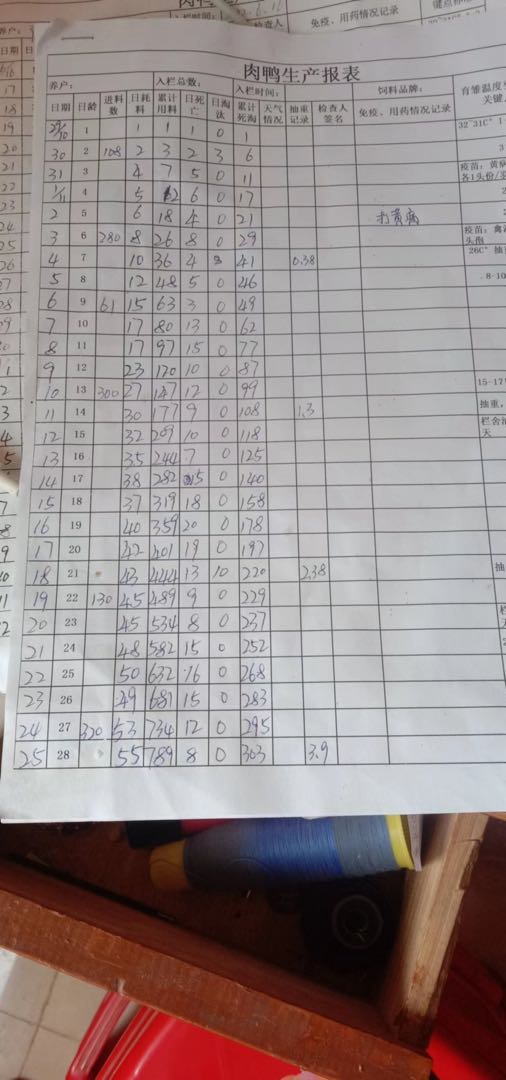 肉鸭生产报表
养户： 入栏总数： 入栏时间： 饲料品牌：
日期 日龄 进料数 日耗料 累计用料 日死亡 日淘汰 累计死淘 天气情况 抽重记录 检查人签名 免疫、用药情况记录
29/10 1 1 1 1 0 1
30 2 108 2 3 2 3 6
31 3 4 7 5 0 11
1/11 4 5 12 6 0 17
2 5 6 18 4 0 21 打黄病
3 6 280 8 26 8 0 29
4 7 10 36 4 8 41 0.38
5 8 12 48 5 0 46
6 9 61 15 63 3 0 49
7 10 17 80 13 0 62
8 11 17 97 15 0 77
9 12 23 120 10 0 87
10 13 300 27 147 12 0 99
11 14 30 177 9 0 108 1.3
12 15 32 209 10 0 118
13 16 35 244 7 0 125
14 17 38 282 15 0 140
15 18 37 319 18 0 158
16 19 40 359 20 0 178
17 20 42 401 19 0 197
18 21 43 444 13 10 220 2.38
19 22 130 45 489 9 0 229
20 23 45 534 8 0 237
21 24 48 582 15 0 252
22 25 50 632 16 0 268
23 26 49 681 15 0 283
24 27 320 53 734 12 0 295
25 28 55 789 8 0 303 3.9